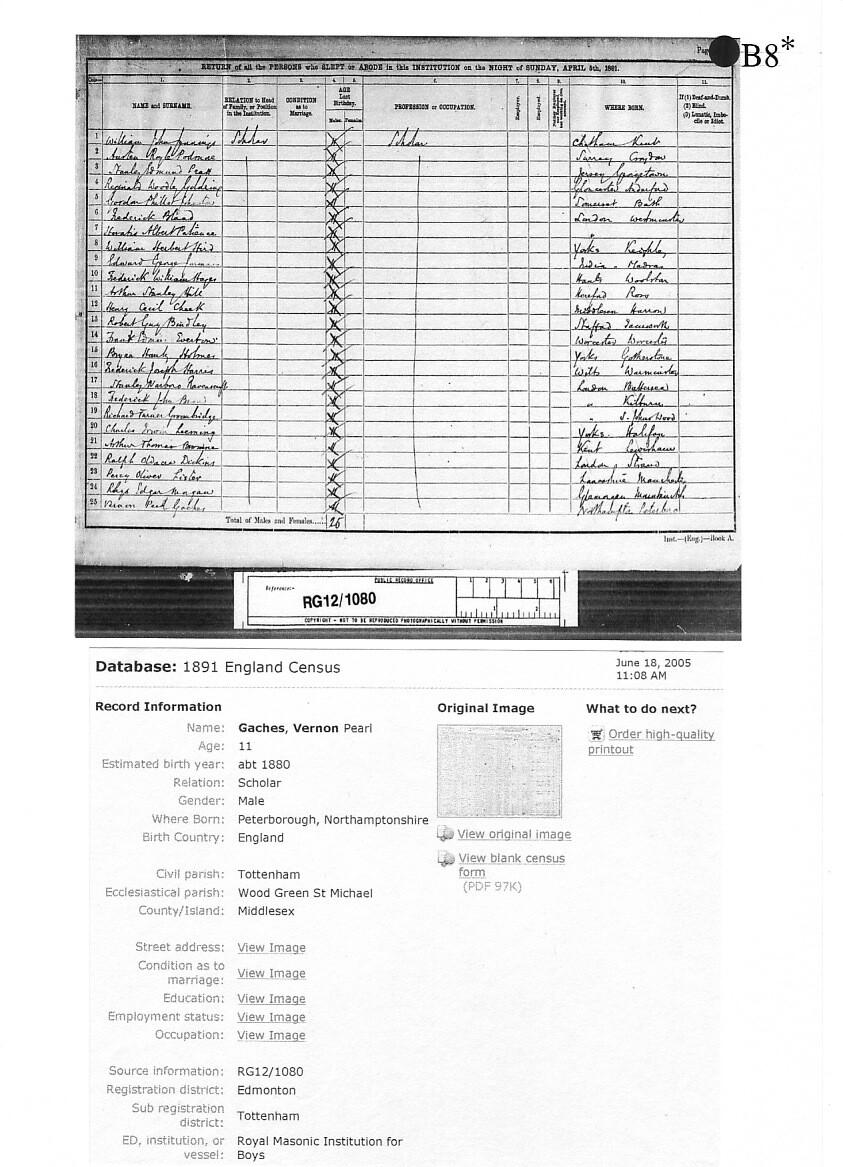 Page
B8*
RETURN of all the PERSONS who SLEPT or ABODE in this INSTITUTION on the NIGHT of SUNDAY, APRIL 5th, 1891.
1. 2. 3. 4. 5. 6. 7. 8. 9. 10. 11.
NAME and SURNAME. RELATION to Head of Family, or Position in the Institution. CONDITION as to Marriage. AGE Last Birthday. Males. Females. PROFESSION or OCCUPATION. Employer. Employed. WHERE BORN. If (1) Deaf-and-Dumb. (2) Blind. (3) Lunatic, Imbecile or Idiot.
1 William John Jennings Scholar Scholar Chatham Kent
2 Surrey Croydon
3 Stanley Edmund Jersey Georgetown
4 Reginald Woodley Goldring Gloucester
5 Gordon Somerset Bath
6 Frederick London Westminster
7 Horatio Albert Patience "
8 William Herbert Yorks Keighley
9 Edward George India - Madras
10 Frederick William Hants Woolston
11 Arthur Stanley Hill Hereford Ross
12 Henry Cecil Cheek Middlesex Harrow
13 Robert Guy Bindley Stafford
14 Frank Everton Worcester Worcester
15 Bryan Holmes Yorks
16 Frederick Joseph Harris Wilts Warminster
17 Stanley London Battersea
18 Frederick John " Kilburn
19 Richard Turner Groombridge " S. Johns Wood
20 Charles Leeming Yorks. Halifax
21 Arthur Thomas Kent Lewisham
22 Ralph Dickins London, Strand
23 Percy Oliver Lister Lancashire
24 Rhys Edgar Morgan Glamorgan
25 Vernon Pearl Gaches
Total of Males and Females..... 25
Inst.—(Eng.)—Book A.
PUBLIC RECORD OFFICE
Reference:-
RG12/1080
1 2 3 4 5 6
1 2
COPYRIGHT - NOT TO BE REPRODUCED PHOTOGRAPHICALLY WITHOUT PERMISSION
Database: 1891 England Census
June 18, 2005
11:08 AM
Record Information
Name: Gaches, Vernon Pearl
Age: 11
Estimated birth year: abt 1880
Relation: Scholar
Gender: Male
Where Born: Peterborough, Northamptonshire
Birth Country: England
Civil parish: Tottenham
Ecclesiastical parish: Wood Green St Michael
County/Island: Middlesex
Street address: View Image
Condition as to marriage: View Image
Education: View Image
Employment status: View Image
Occupation: View Image
Source information: RG12/1080
Registration district: Edmonton
Sub registration district: Tottenham
ED, institution, or vessel: Royal Masonic Institution for Boys
Original Image
View original image
View blank census form
(PDF 97K)
What to do next?
Order high-quality printout